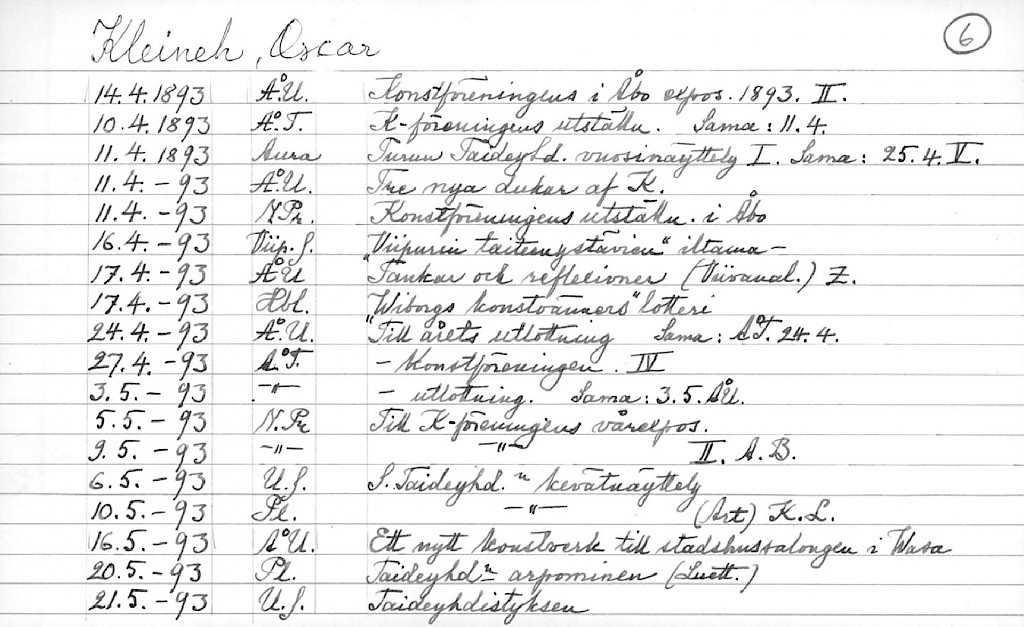 Kleineh, Oscar 6
14.4.1893 Å.U. Konstföreningens i Åbo expos. 1893. II.
10.4.1893 Å.T. K-föreningens utställn. Sama: 11.4.
11.4.1893 Aura Turun Taideyhd. vuosinäyttely I. Sama: 25.4. V.
11.4.-93 Å.U. Tre nya dukar af K.
11.4.-93 N.Pr. Konstföreningens utställn. i Åbo
16.4.-93 Viip.S. "Viipurin taiteenystävien" iltama-
17.4.-93 Å.U Tankar och reflexioner (Viivanal.) Z.
17.4.-93 Hbl. "Wiborgs konstvänners" lotteri
24.4.-93 Å.U. Till årets utlottning Sama: Å.T. 24.4.
27.4.-93 Å.T. - Konstföreningen. IV
3.5.-93 -"- - utlottning. Sama: 3.5. Å.U.
5.5.-93 N.Pr Till K-föreningens vårexpos.
9.5.-93 -"- -"- II. A.B.
6.5.-93 U.S. S.Taideyhd.n kevätnäyttely
10.5.-93 Pl. -"- (Art) K.L.
16.5.-93 Å.U. Ett nytt konstverk till stadshussalongen i Wasa
20.5.-93 Pl. Taideyhdn arpominen (Luett.)
21.5.-93 U.S. Taideyhdistyksen